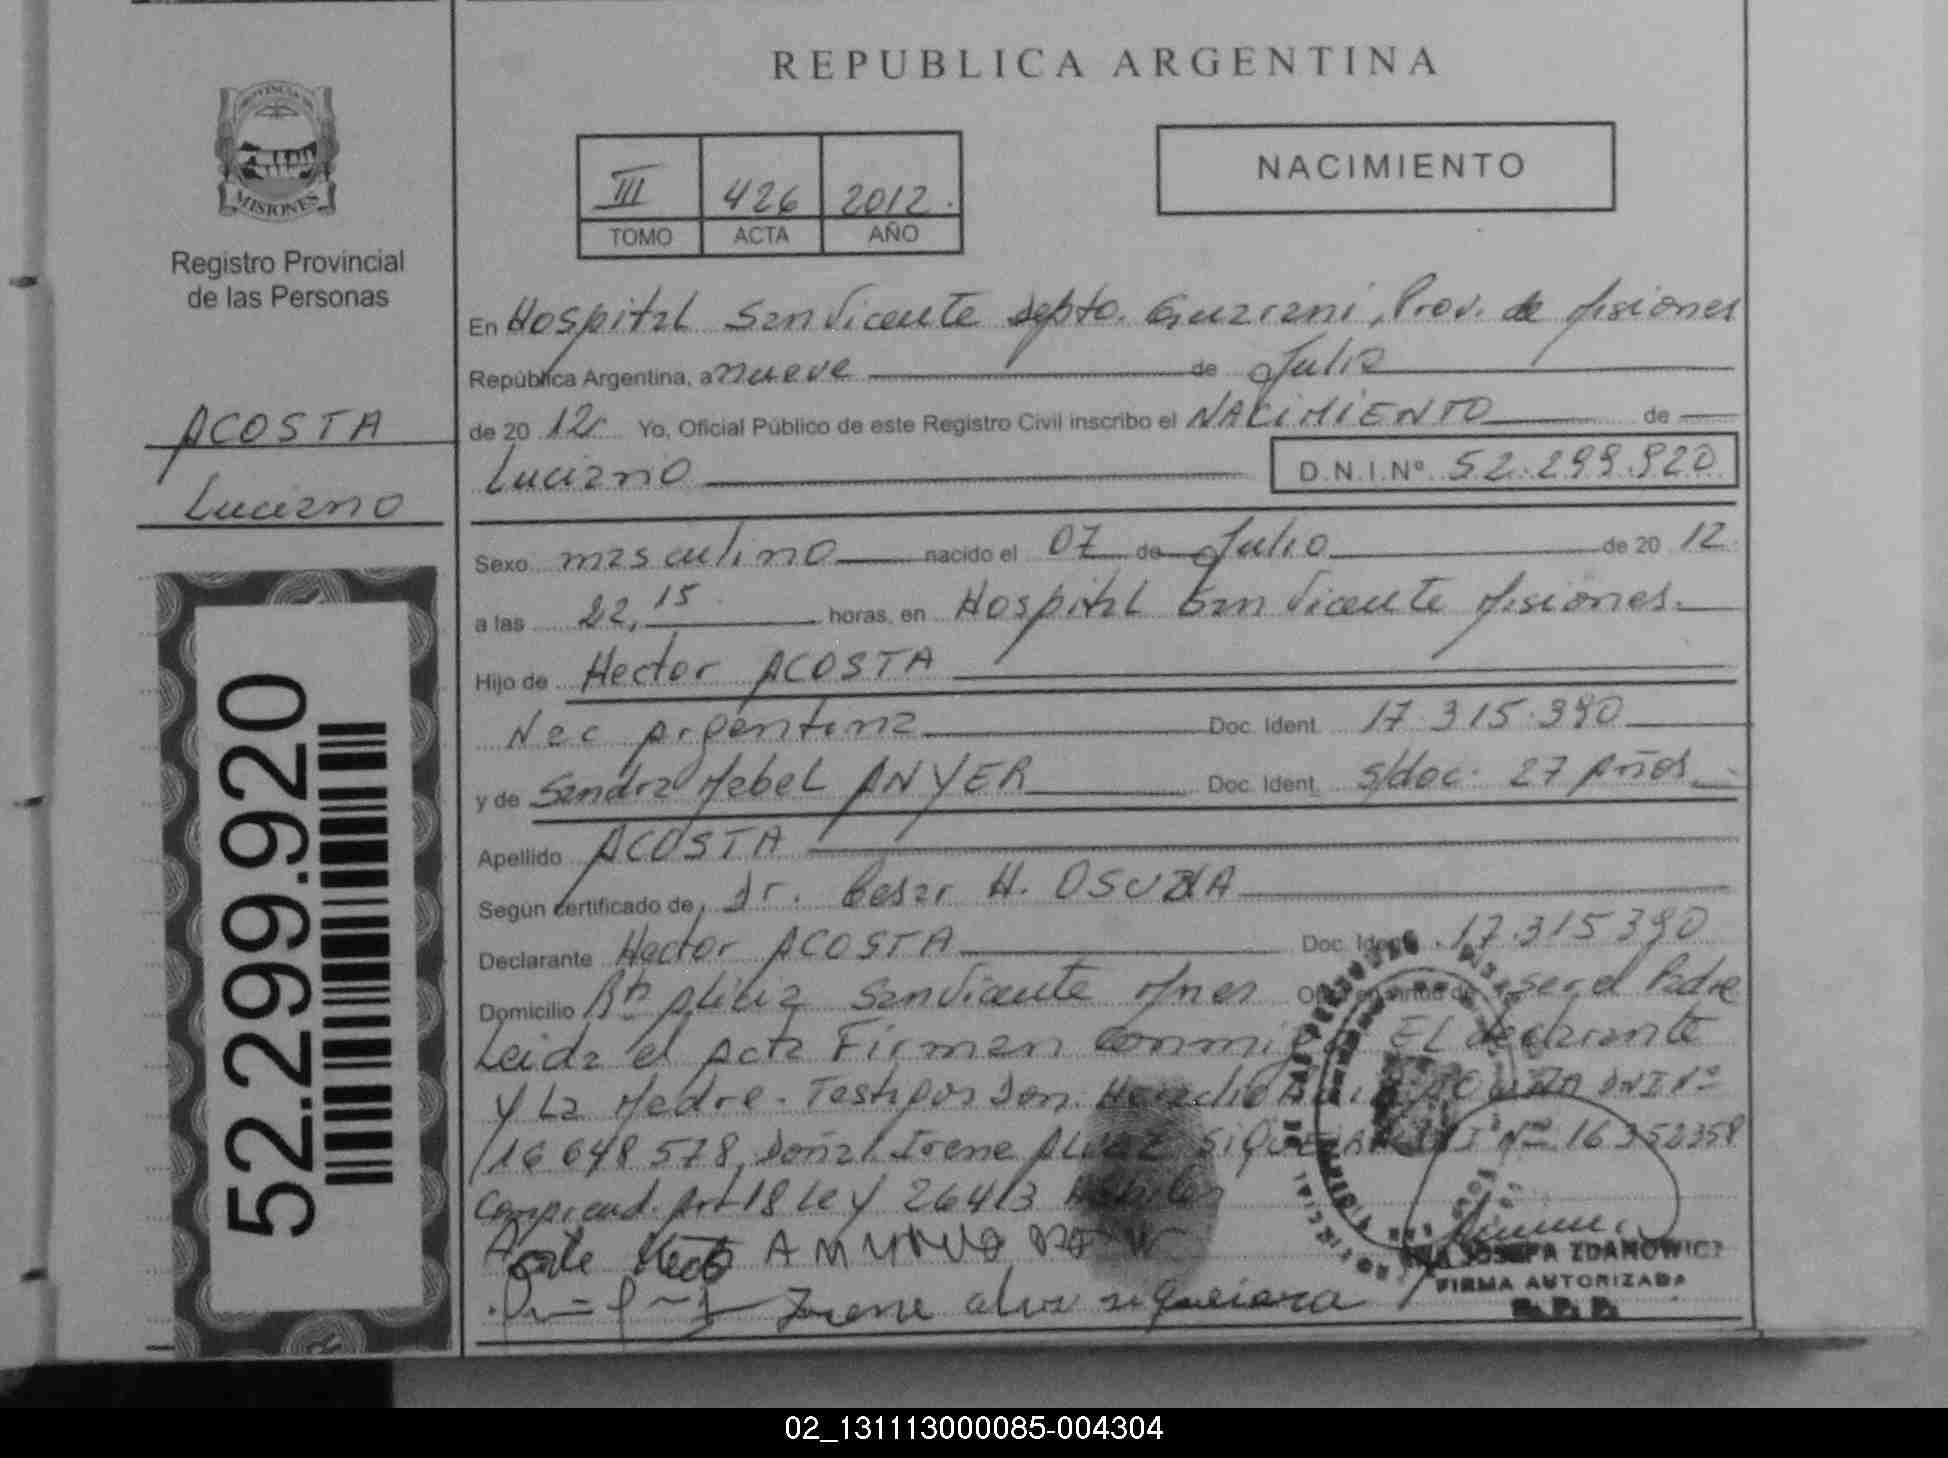 REPUBLICA ARGENTINA
PROVINCIA DE
MISIONES
Registro Provincial
de las Personas
III 426 2012.
TOMO ACTA AÑO
NACIMIENTO
ACOSTA
Luciano
52.299.920
En Hospital San Vicente depto. Guarani, Prov. de Misiones
República Argentina, a nueve de Julio
de 20 12 Yo, Oficial Público de este Registro Civil inscribo el NACIMIENTO de
Luciano D.N.I.Nº 52.299.920
Sexo masculino nacido el 07 de Julio de 20 12.
a las 22,15 horas, en Hospital San Vicente Misiones.
Hijo de Hector ACOSTA
Nac Argentina Doc. Ident. 17.315.390
y de Sandra Mabel ANYER Doc. Ident. s/doc. 27 Años.
Apellido ACOSTA
Según certificado de Dr. Cesar H. OSUNA
Declarante Hector ACOSTA Doc. Ident. 17.315.390
Domicilio Bº Alicia San Vicente Mnes Obra en virtud de ser el Padre
Leida el Acta Firman conmigo El declarante
Y La Madre. Testigos Don. DNI Nº
16 648 578, Doña. Irene SIQUEIRA DNI Nº 16352358
Comprend. Art 18 Ley 26413
Irene
ZDANOWICZ
FIRMA AUTORIZADA
02_131113000085-004304